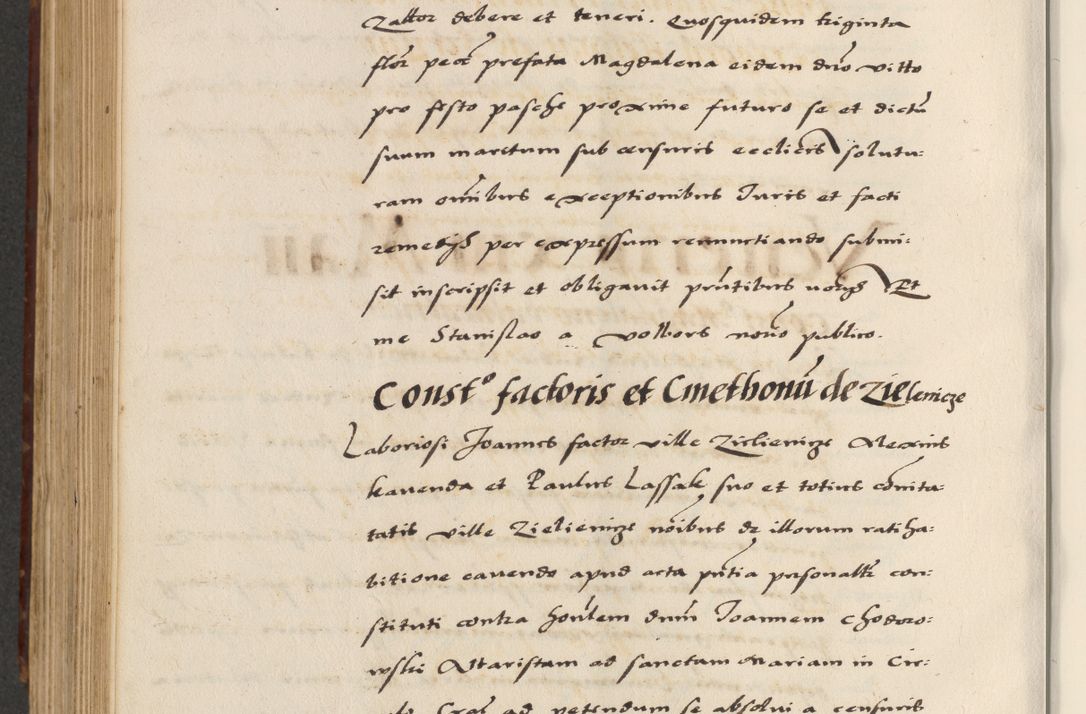 Zator debere et teneri. Quosquidem triginta
flor pecē prefata Magdalena eidem dno Vitto
pro festo pasche proxime futuro se et dictū
suum maritum sub censuris ecclicis solutu:
ram omibus exceptionibus Juris et facti
remedijs per expressum renunctiando submi:
sit inscripsit et obligauit pntibus Et
me Stanislao a Volbors noto publico.
Const° factoris et Cmethonū de Zielenicze
Laboriosi Joannes factor ville Zielienicze Alexius
kauenda et Paulus Lassak suo et totius comita:
tatis ville Zielienicze noibus de illorum ratiha:
bitione cauendo apud acta pntia personaltr con:
stituti contra honlem dnm Joannem Chodoro:
wski Altaristam ad sanctam Mariam in Cir:
Crac ad petendum se absolui a censuris